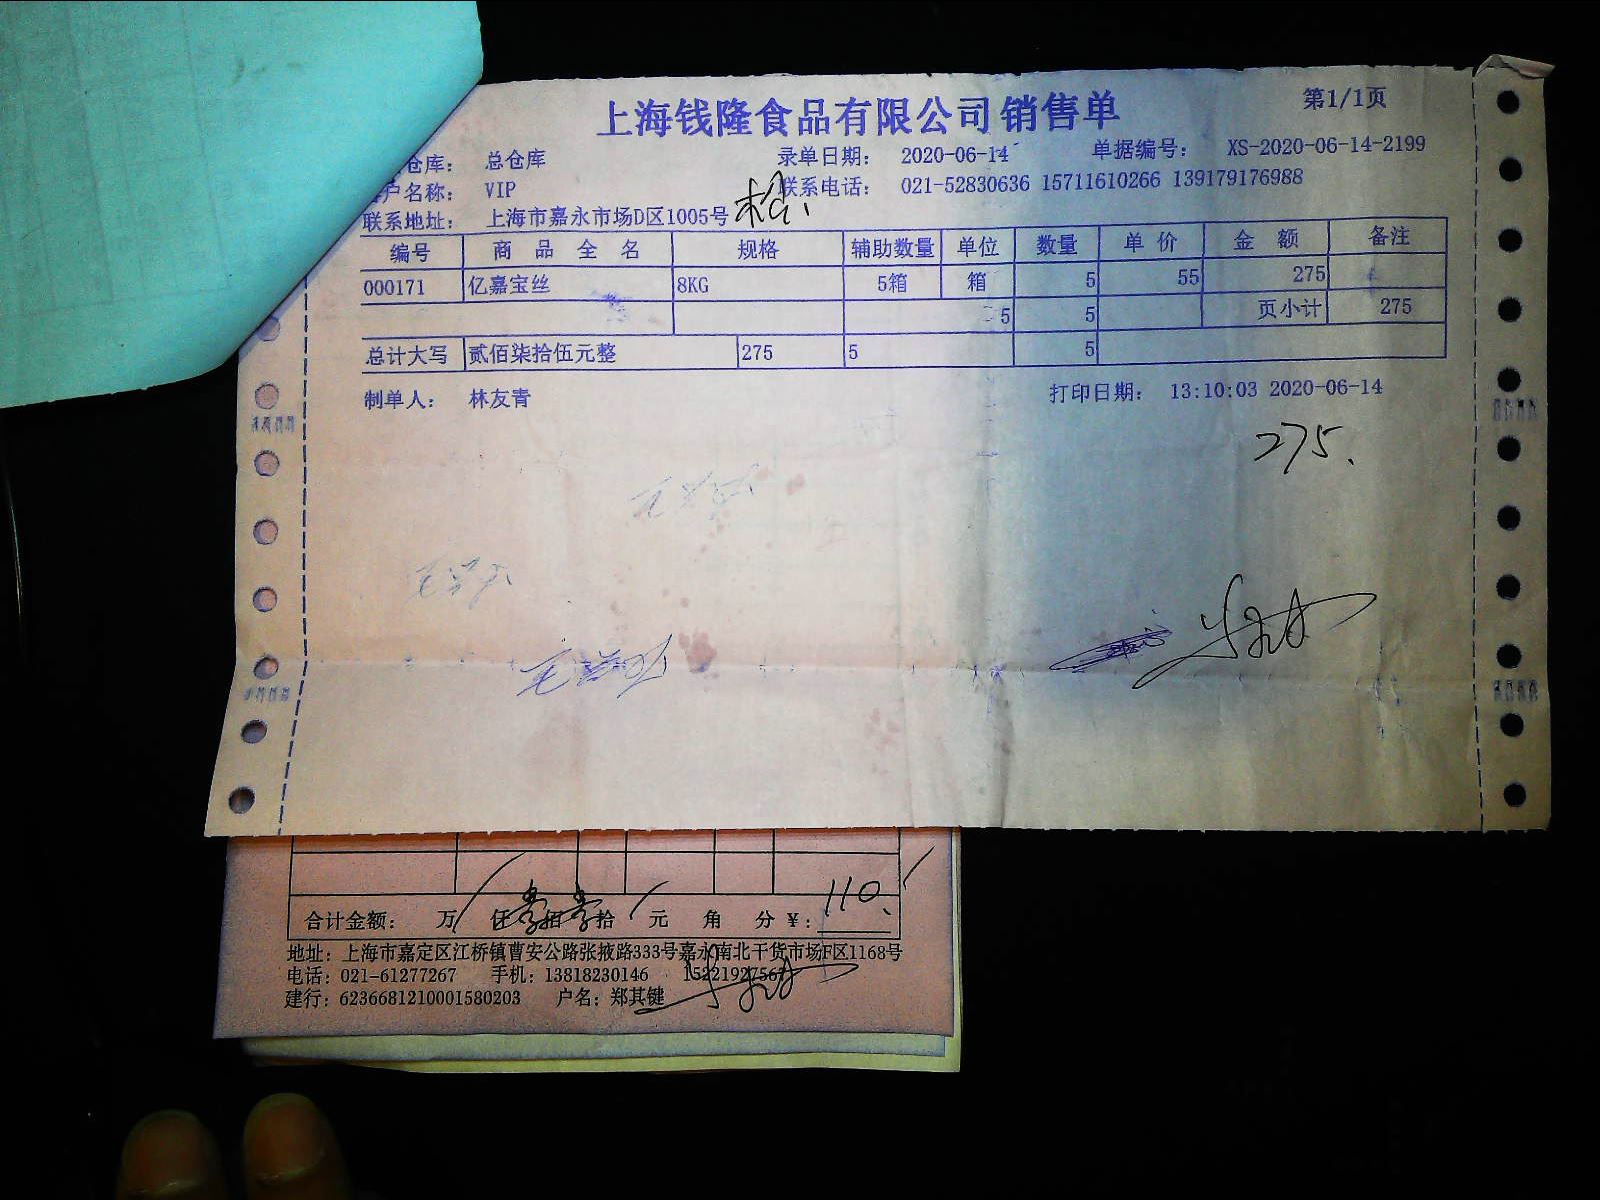 上海钱隆食品有限公司销售单 第1/1页
仓库: 总仓库 录单日期: 2020-06-14 单据编号: XS-2020-06-14-2199
户名称: VIP 联系电话: 021-52830636 15711610266 139179176988
联系地址: 上海市嘉永市场D区1005号
编号 商品全名 规格 辅助数量 单位 数量 单价 金额 备注
000171 亿嘉宝丝 8KG 5箱 箱 5 55 275
5 5 页小计 275
总计大写 贰佰柒拾伍元整 275 5 5
制单人: 林友青 打印日期: 13:10:03 2020-06-14
275.
合计金额: 万 仟 佰 拾 元 角 分 ¥: 110.
地址: 上海市嘉定区江桥镇曹安公路张掖路333号嘉永南北干货市场F区1168号
电话: 021-61277267 手机: 13818230146
建行: 6236681210001580203 户名: 郑其键